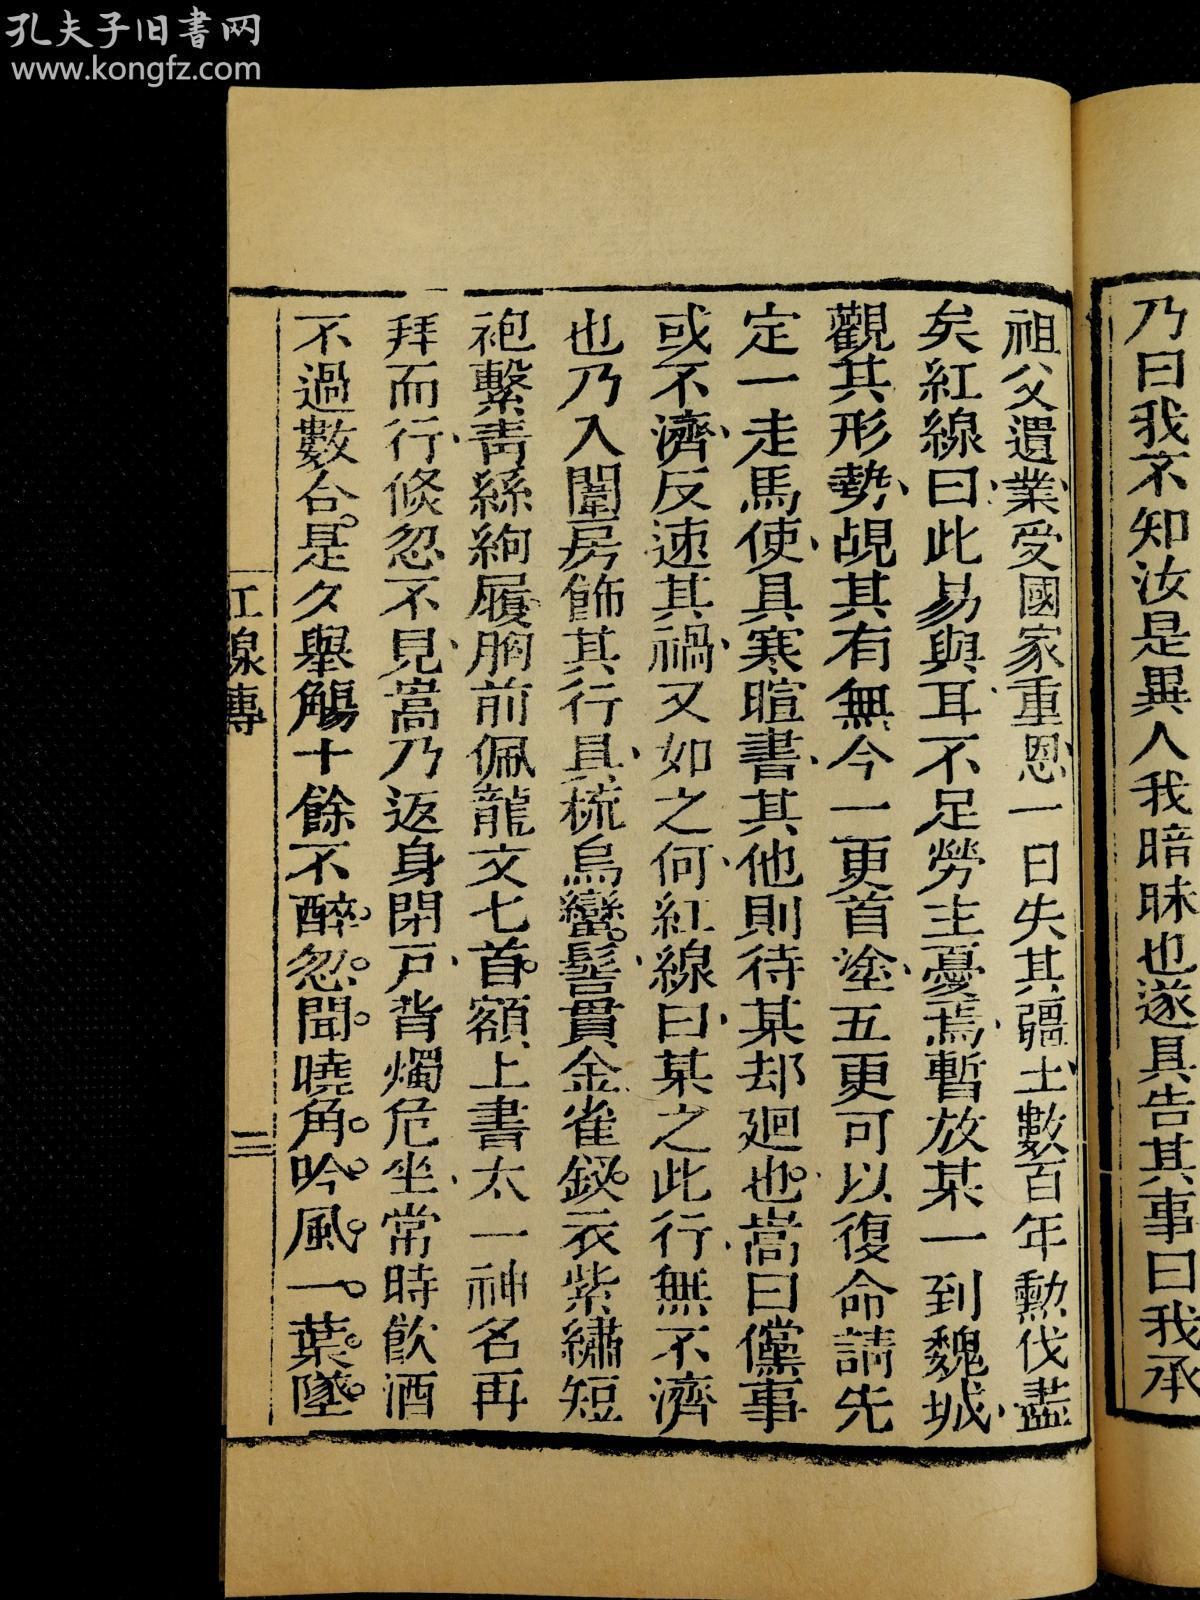 孔夫子旧书网
www.kongfz.com
乃曰我不知汝是異人我暗昧也遂具告其事曰我承
祖父遺業受國家重恩一日失其疆土數百年勲伐盡
矣紅線曰此易與耳不足勞主憂焉暫放某一到魏城
觀其形勢覘其有無今一更首塗五更可以復命請先
定一走馬使具寒暄書其他則待某却廻也嵩曰儻事
或不濟反速其禍又如之何紅線曰某之此行無不濟
也乃入闈房飾其行具梳烏蠻髻貫金雀釵衣紫繡短
袍繫青絲絇履胸前佩龍文七首額上書太一神名再
拜而行倏忽不見嵩乃返身閉戸背燭危坐常時飲酒
不過數合是夕舉觴十餘不醉忽聞曉角吟風一葉墜
紅線傳
三